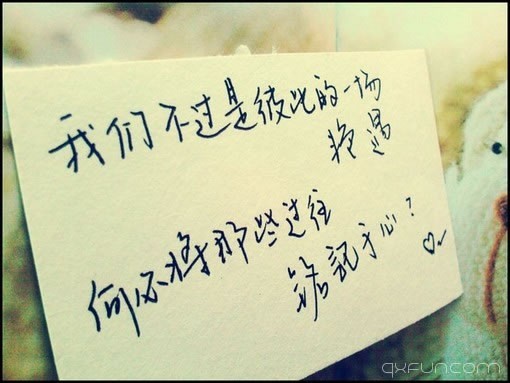 我们不过是彼此的一场
艳遇
何必将那些过往
銘記于心?♡
qxfun.com